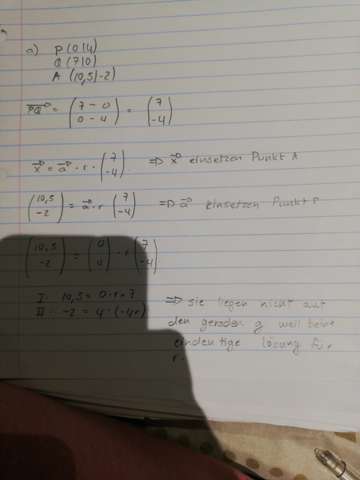 a) P(0|4)
Q(7|0)
A (10,5|-2)
PQ = (7 - 0 0 - 4) = (7 -4)
x = a · r · (7 -4) => x einsetzen Punkt A
(10,5 -2) = a · r (7 -4) => a einsetzen Punkt P
(10,5 -2) = (0 4) · r (7 -4)
I 10,5 = 0 · r · 7 => sie liegen nicht auf
II -2 = 4 · (-4r) den geraden g weil keine
eindeutige lösung für
r.